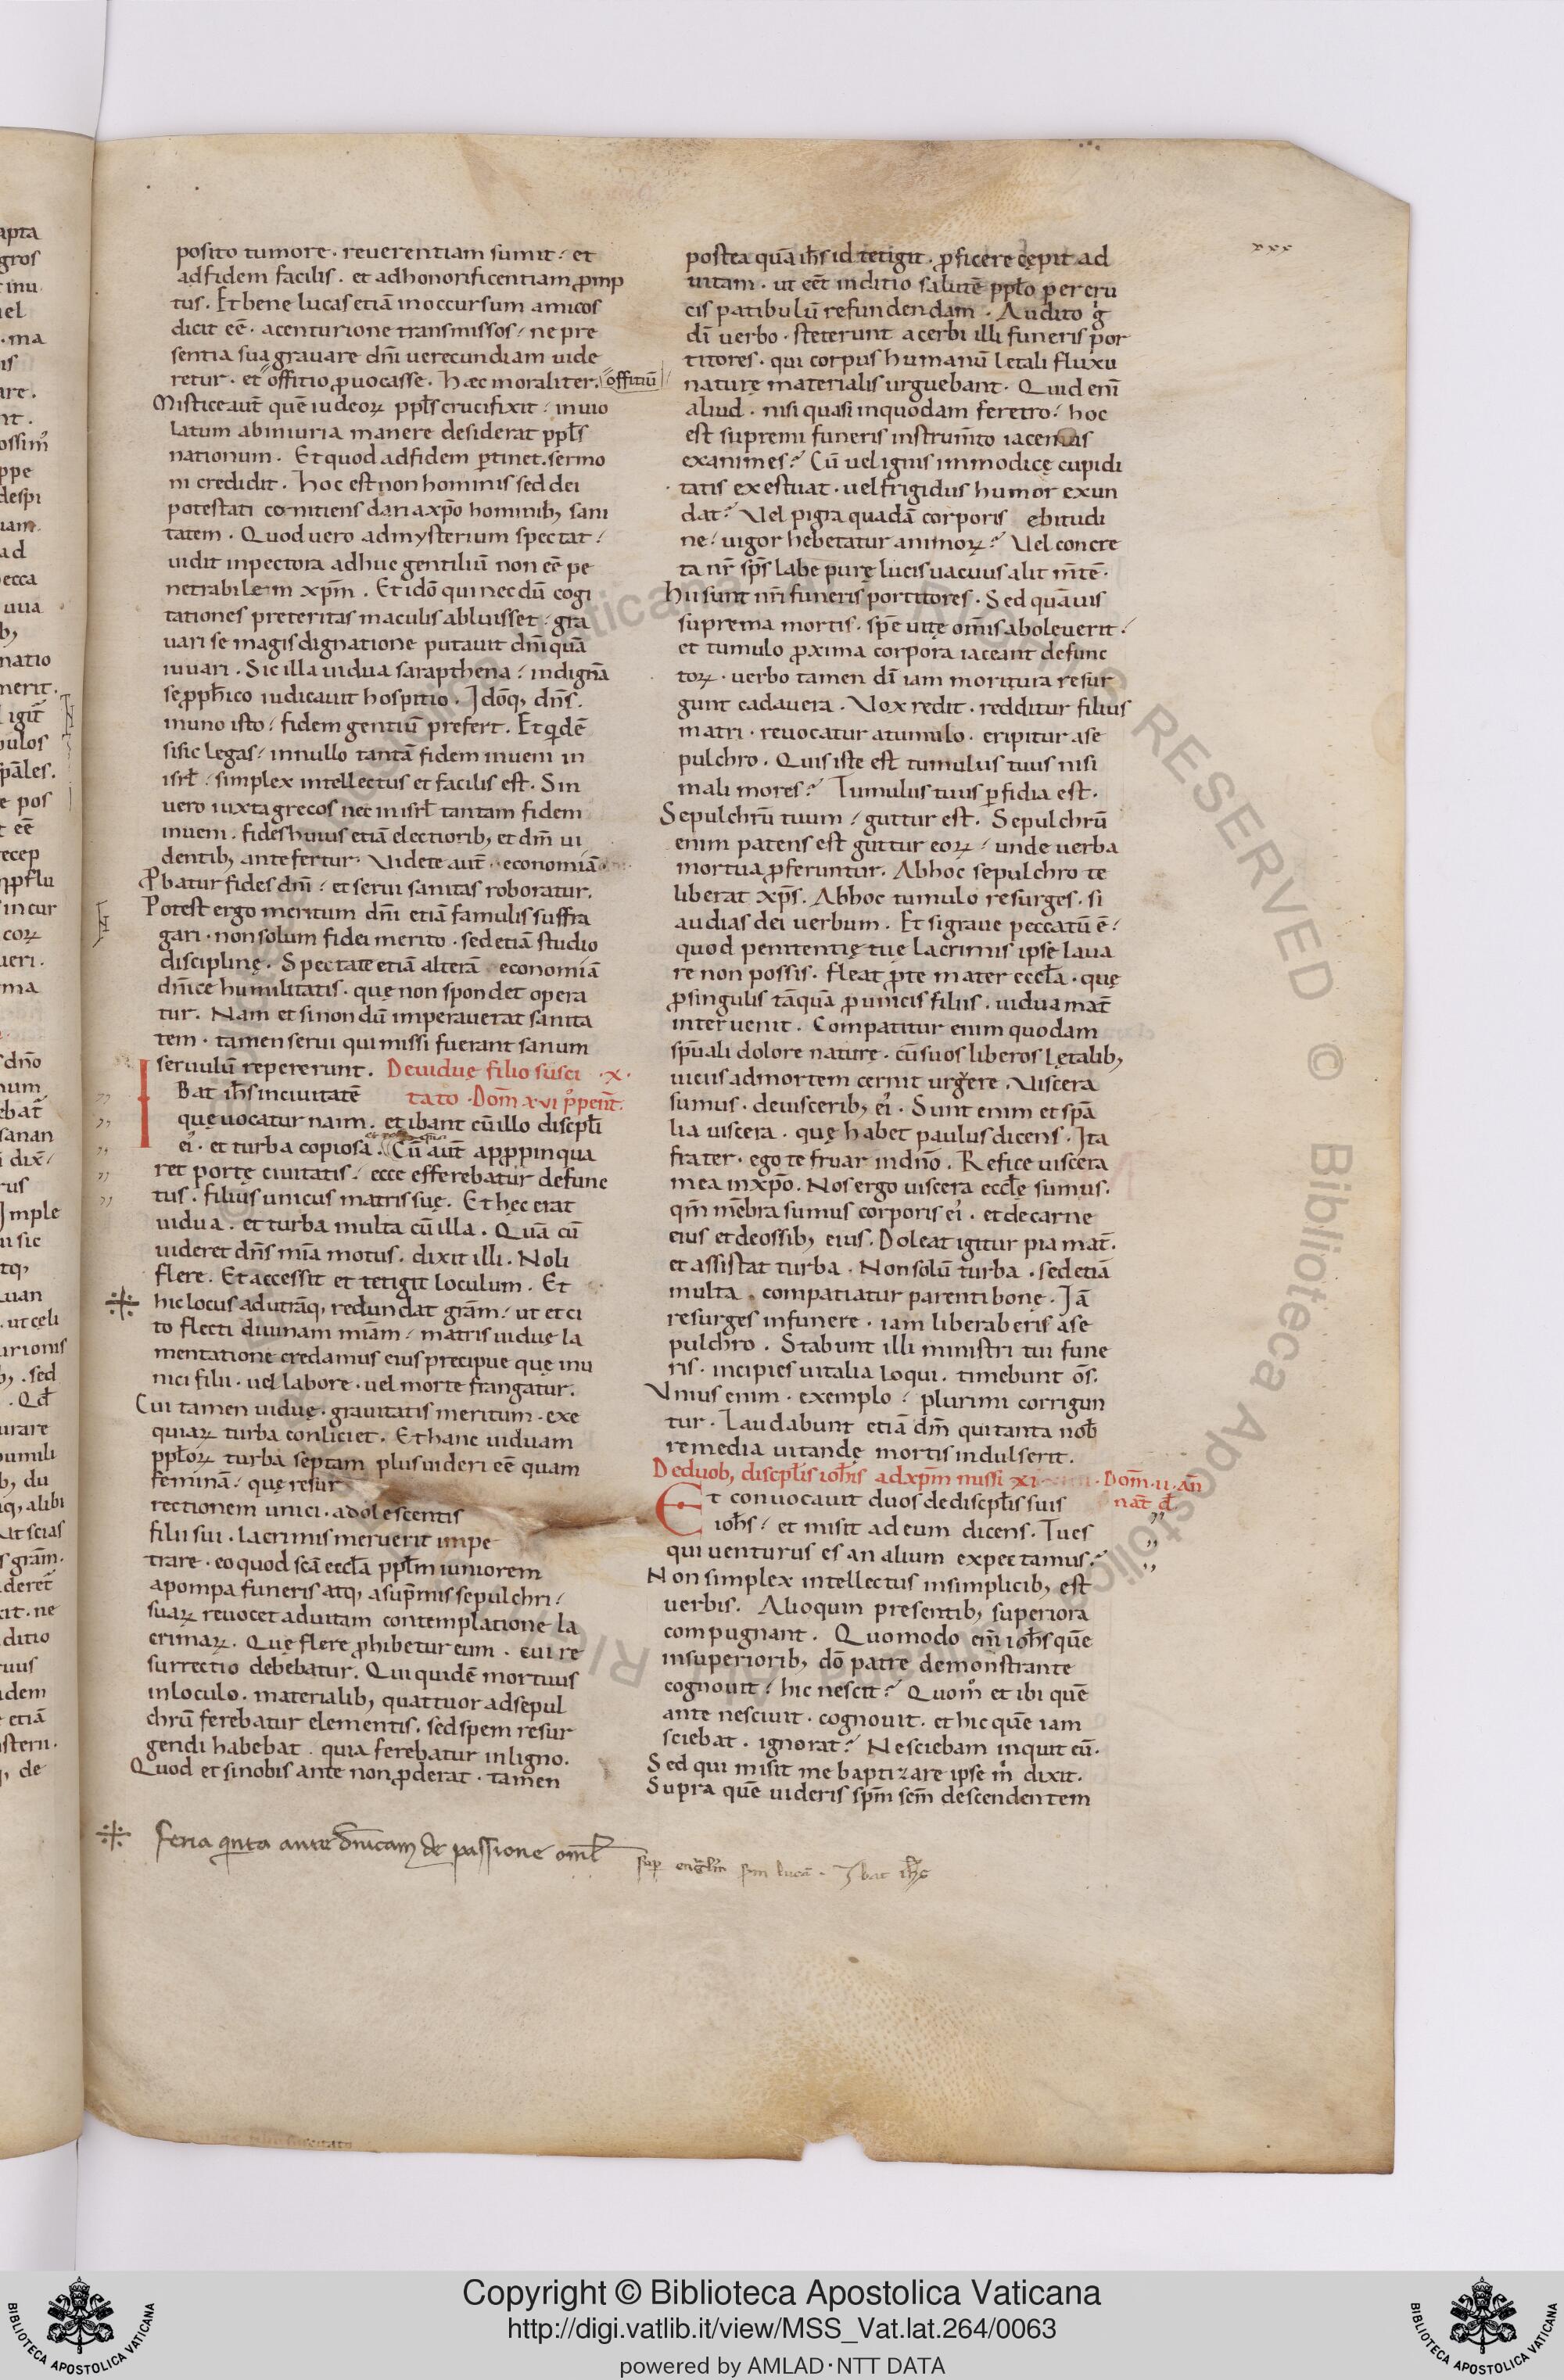 xxx
posito tumore · reuerentiam sumit / et
ad fidem facilis . et ad honorificentiam ꝓmp
tus . Et bene lucas etiā in occursum amicos
dicit eē · a centurione transmissos / ne pre
sentia sua grauare dn̄i uerecundiam uide
retur · et offitio ꝓuocasse . Hæc moraliter. offitiū
Mistice aut̄ quē iudeoꝝ ppl̄s crucifixit / inuio
latum ab iniuria manere desiderat ppl̄s
nationum . Et quod ad fidem ꝑtinet . sermo
ni credidit . hoc est non hominis sed dei
potestati conitiens dari a xp̄o hominib; sani
tatem . Quod uero ad mysterium spectat /
uidit in pectora adhuc gentiliū non eē pe
netrabilem xp̄m . Et idō qui nec dū cogi
tationes preteritas maculis abluisset / gra
uari se magis dignatione putauit dn̄i quā
iuuari . Sic illa uidua sarapthena / indignā
se ꝓph̄ico iudicauit hospitio . Idōq; dn̄s .
in uno isto / fidem gentiū prefert . Et qidē
si sic legas / in nullo tantā fidem inueni in
isrl̄ / simplex intellectus et facilis est . Sin
uero iuxta grecos nec in isrl̄ tantam fidem
inueni . fides huius etiā electiorib; et dm̄ ui
dentib; antefertur . Videte aut̄ · economiā
Ꝓbatur fides dn̄i / et serui sanitas roboratur .
Potest ergo meritum dn̄i etiā famulis suffra
gari · non solum fidei merito · sed etiā studio
disciplinę . Spectate etiā alterā economiā
dn̄ice humilitatis . quę non spondet opera
tur . Nam et si non dū imperauerat sanita
tem · tamen serui qui missi fuerant sanum
seruulū repererunt . De uiduę filio susci · x .
IBat ih̄s in ciuitatē tato · Dom̄ · xvi p̓ pent̄ .
quę uocatur naim . et ibant cū illo discpl̄i
ei᾽ . et turba copiosa . Cū aut̄ apꝓpinqua
ret portę ciuitatis / ecce efferebatur defunc
tus . filius unicus matris suę . Et hec erat
uidua . et turba multa cū illa . Quā cū
uideret dn̄s mīa motus . dixit illi . Noli
flere . Et accessit et tetigit loculum . Et
hic locus ad utrāq; redundat grām / ut et ci
to flecti diuinam miām / matris uiduę la
mentatione credamus eius precipue quę inu
nici filii · uel labore · uel morte frangatur .
Cui tamen uiduę · grauitatis meritum · exe
quiaꝝ turba conliciet . Et hanc uiduam
ppl̄oꝝ turba septam plus uideri eē quam
feminā / quę resur
rectionem unici · adolescentis
filii sui . lacrimis meruerit impe
trare · eo quod scā eccl̄a ppl̄m iuniorem
a pompa funeris atq; a sup̄mis sepulchri /
suaꝝ reuocet ad uitam contemplatione la
crimaꝝ . Quę flere ꝓhibetur eum . cui re
surrectio debebatur . Qui quidē mortuus
in loculo . materialib; quattuor ad sepul
chrū ferebatur elementis . sed spem resur
gendi habebat . quia ferebatur in ligno .
Quod et si nobis ante non ꝓderat · tamen
postea quā ih̄s id tetigit . ꝓficere cępit ad
uitam . ut eēt inditio salutē ppl̄o per cru
cis patibulū refundendam . Audito g̓
dī uerbo . steterunt acerbi illi funeris por
titores . qui corpus humanū letali fluxu
naturę materialis urguebant . Quid enī
aliud . nisi quasi in quodam feretro / hoc
est supremi funeris instrum̄to iacemus
exanimes ? Cū uel ignis immodicę cupidi
tatis exestuat . uel frigidus humor exun
dat ? Vel pigra quadā corporis ebitudi
ne / uigor hebetatur animoꝝ ? Vel concre
ta nr̄ sp̄s labe purę lucis uacuus alit m̄tē .
hii sunt nr̄i funeris portitores . Sed quāuis
suprema mortis . spē uitę om̄is aboleuerit /
et tumulo ꝓxima corpora iaceant defunc
toꝝ . uerbo tamen dī iam moritura resur
gunt cadauera . Vox redit . redditur filius
matri . reuocatur a tumulo . eripitur a se
pulchro . Quis iste est tumulus tuus nisi
mali mores ? Tumulus tuus ꝑfidia est .
Sepulchrū tuum / guttur est . Sepulchrū
enim patens est guttur eoꝝ / unde uerba
mortua ꝓferuntur . Ab hoc sepulchro te
liberat xp̄s . Ab hoc tumulo resurges . si
audias dei uerbum . Et si graue peccatū ē /
quod penitentię tue lacrimis ipse laua
re non possis . fleat ꝓ te mater eccl̄a . quę
ꝓ singulis tāquā ꝓ unicis filiis . uidua mat̄
interuenit . Compatitur enim quodam
sp̄uali dolore nature . cū suos liberos lętalib;
uiciis ad mortem cernit urgere . Viscera
sumus . de uiscerib; ei᾽ . Sunt enim et sp̄a
lia uiscera . quę habet paulus dicens . Ita
frater . ego te fruar in dn̄o . Refice uiscera
mea in xp̄o . Nos ergo uiscera eccl̄ę sumus .
qm̄ mēbra sumus corporis ei᾽ . et de carne
eius et de ossib; eius . Doleat igitur pia mat̄ .
et assistat turba . Non solū turba . sed etiā
multa . compatiatur parenti bonę . Iā
resurges in funere . iam liberaberis a se
pulchro . Stabunt illi ministri tui fune
ris . incipies uitalia loqui . timebunt ōs .
Vnius enim · exemplo / plurimi corrigun
tur . Laudabunt etiā dm̄ qui tanta nob̄
remedia uitandę mortis indulserit .
De duob; discpl̄is ioh̄is ad xp̄m missi xi · Dom̄ · ii · an̄
Et conuocauit duos de discpl̄is suis nat̄ d̄
ioh̄s / et misit ad eum dicens . Tu es
qui uenturus es an alium expectamus ?
Non simplex intellectus in simplicib; est
uerbis . Alioquin presentib; superiora
compugnant . Quomodo enī ioh̄s quē
in superiorib; dō patre demonstrante
cognouit / hic nescit ? Quom̊ et ibi quē
ante nesciuit . cognouit . et hic quē iam
sciebat . ignorat ? Nesciebam inquit eū .
Sed qui misit me baptizare ipse m̓ dixit .
Supra quē uideris sp̄m scm̄ descendentem
feria qinta ante dn̄icam de passione om̄l
sup euḡlm̄ scm lucā . Ibat ih̄c
Copyright © Biblioteca Apostolica Vaticana
http://digi.vatlib.it/view/MSS_Vat.lat.264/0063
powered by AMLAD·NTT DATA
BIBLIOTECA APOSTOLICA VATICANA
BIBLIOTECA APOSTOLICA VATICANA